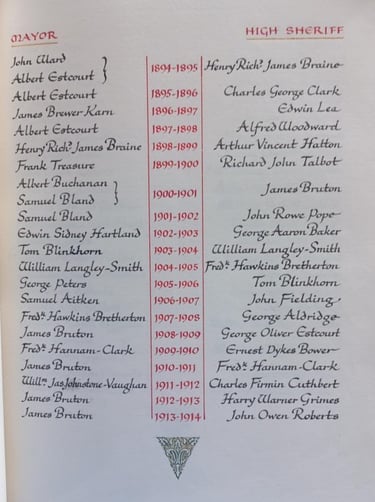 MAYOR HIGH SHERIFF
John Ward
Albert Estcourt } 1894-1895 Henry Richd. James Braine
Albert Estcourt 1895-1896 Charles George Clark
James Brewer Karn 1896-1897 Edwin Lea
Albert Estcourt 1897-1898 Alfred Woodward
Henry Richd. James Braine 1898-1899 Arthur Vincent Hatton
Frank Treasure 1899-1900 Richard John Talbot
Albert Buchanan
Samuel Bland } 1900-1901 James Bruton
Samuel Bland 1901-1902 John Rowe Pope
Edwin Sidney Hartland 1902-1903 George Aaron Baker
Tom Blinkhorn 1903-1904 William Langley-Smith
William Langley-Smith 1904-1905 Fredk. Hawkins Bretherton
George Peters 1905-1906 Tom Blinkhorn
Samuel Aitken 1906-1907 John Fielding
Fredk. Hawkins Bretherton 1907-1908 George Aldridge
James Bruton 1908-1909 George Oliver Estcourt
Fredk. Hannam-Clark 1909-1910 Ernest Dykes Bower
James Bruton 1910-1911 Fredk. Hannam-Clark
Willm. Jas. Johnstone-Vaughan 1911-1912 Charles Firmin Cuthbert
James Bruton 1912-1913 Harry Warner Grimes
James Bruton 1913-1914 John Owen Roberts